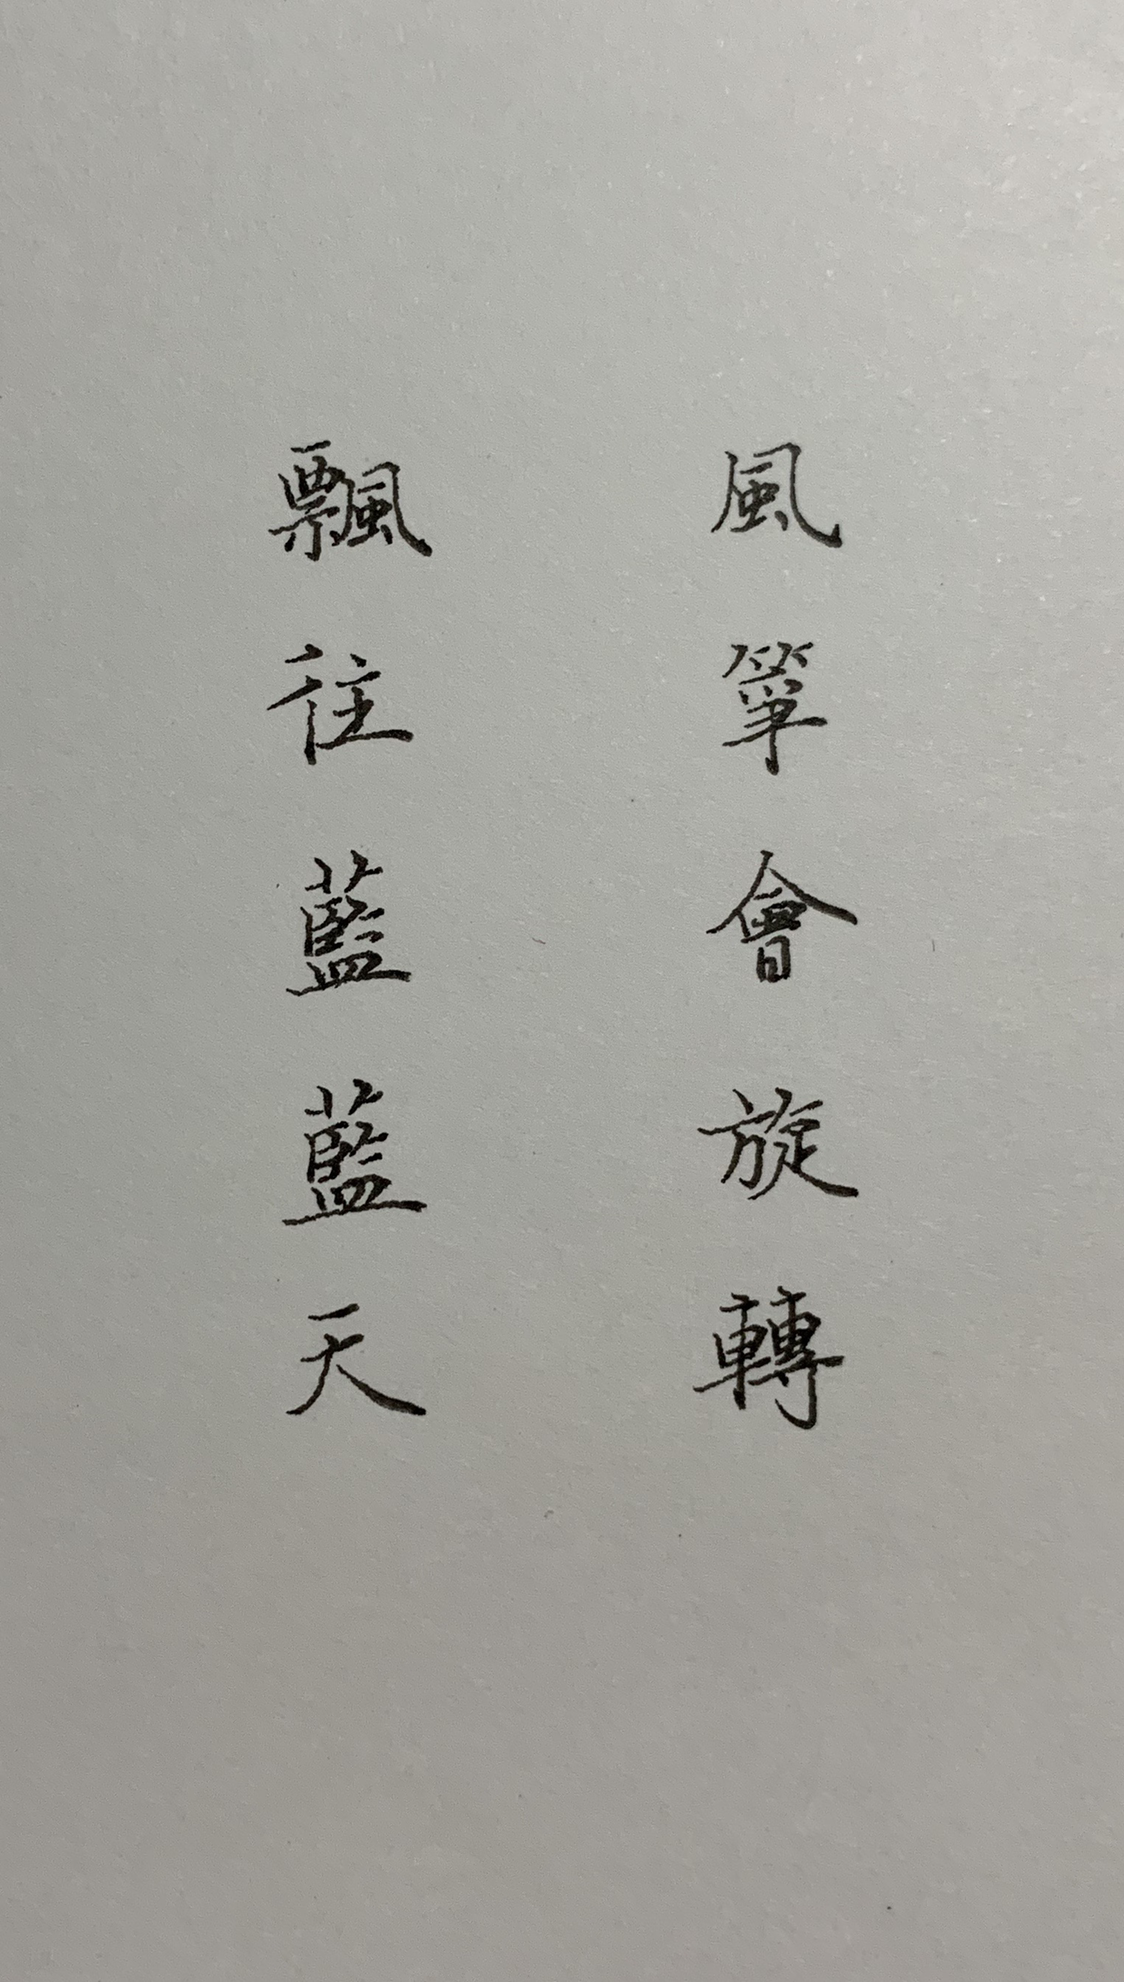 風箏會旋轉
飄往藍藍天